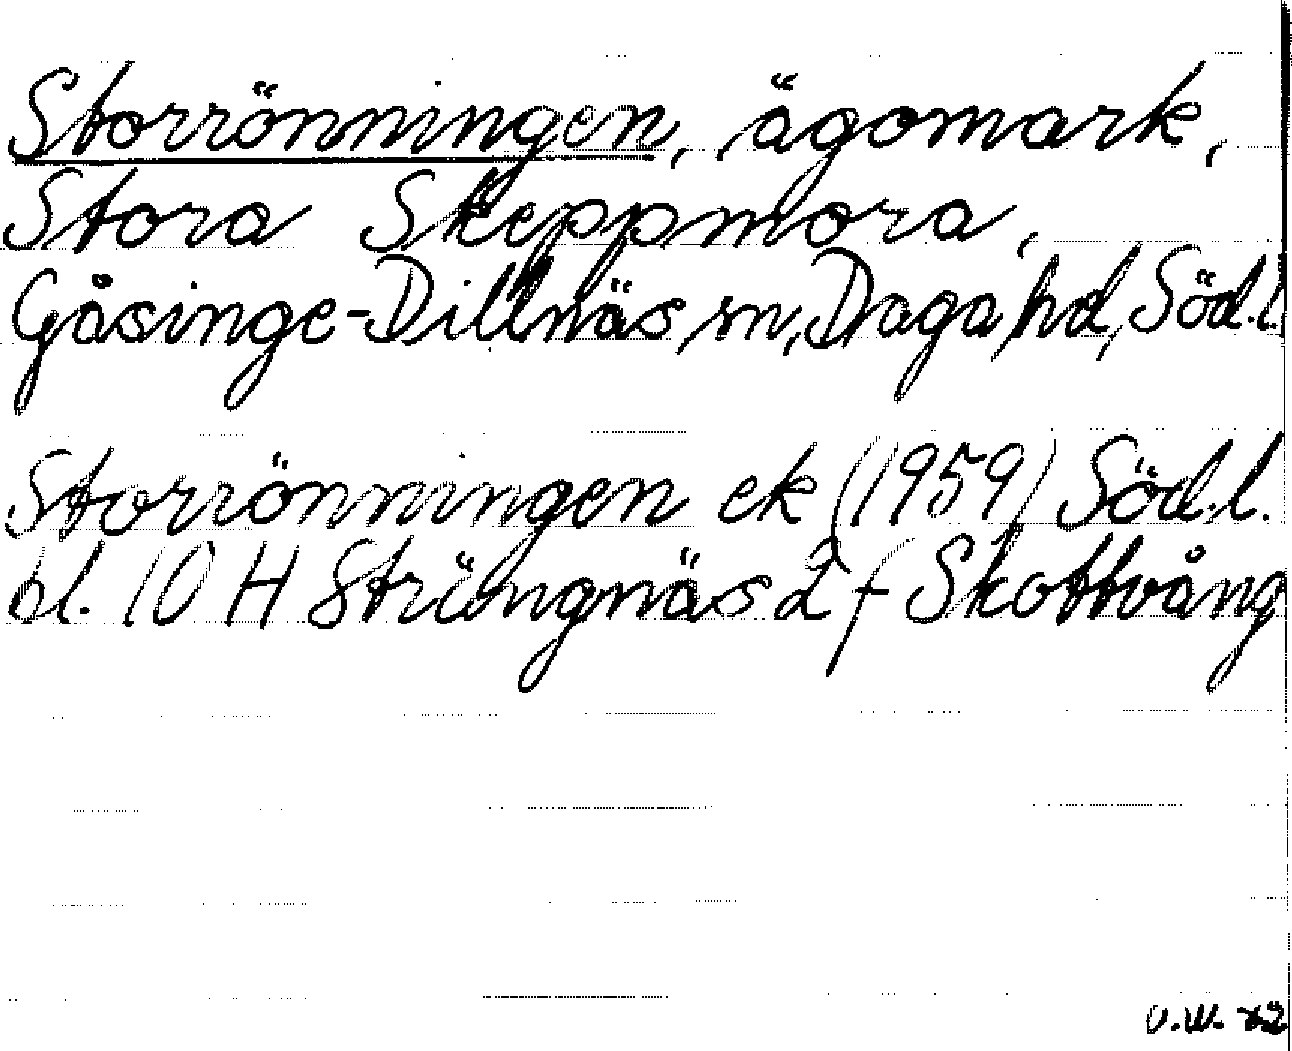 Storrönningen, ägomark,
Stora Skeppmora,
Gåsinge-Dillnäs sn, Daga hd, Södl.
Storrönningen ek (1959) Söd.l.
bl. 10 H Strängnäs 2 f Skottvång
U.W. 72